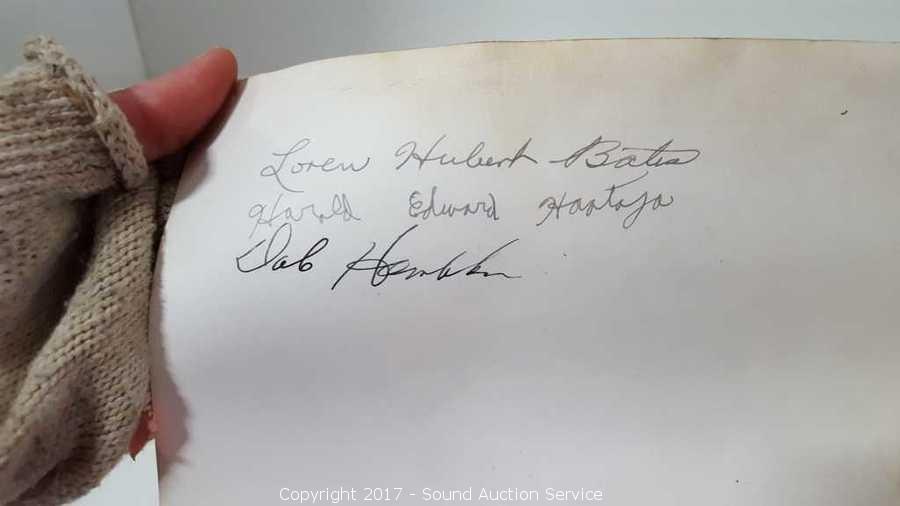 Loren Hubert Bates
Harold Edward Haataja
Copyright 2017 - Sound Auction Service